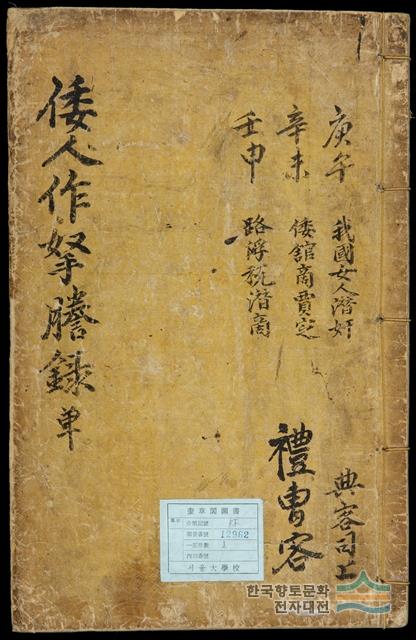 庚午 我國女人潛奸
辛未 倭館商賈定
壬申 路浮稅潛商
典客司上
禮曹客
倭人作拏謄錄 單
奎章閣圖書
圖書番號 12962
一部冊數 1
서울大學校
한국향토문화
전자대전